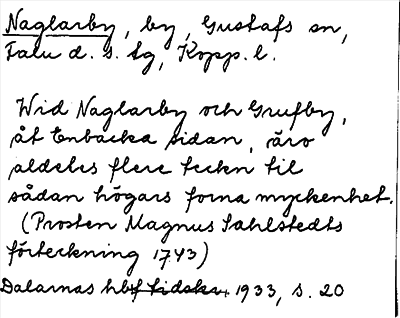 Naglarby, by, Gustafs sn,
Falu d. s. tg, Kopp. l.
Wid Naglarby och Grufby,
åt Enbacka sidan, äro
aldeles flere teckn til
sådan högars forna myckenhet.
(Prosten Magnus Sahlstedts
förteckning 1743)
Dalarnas hbf tidskr. 1933, s. 20